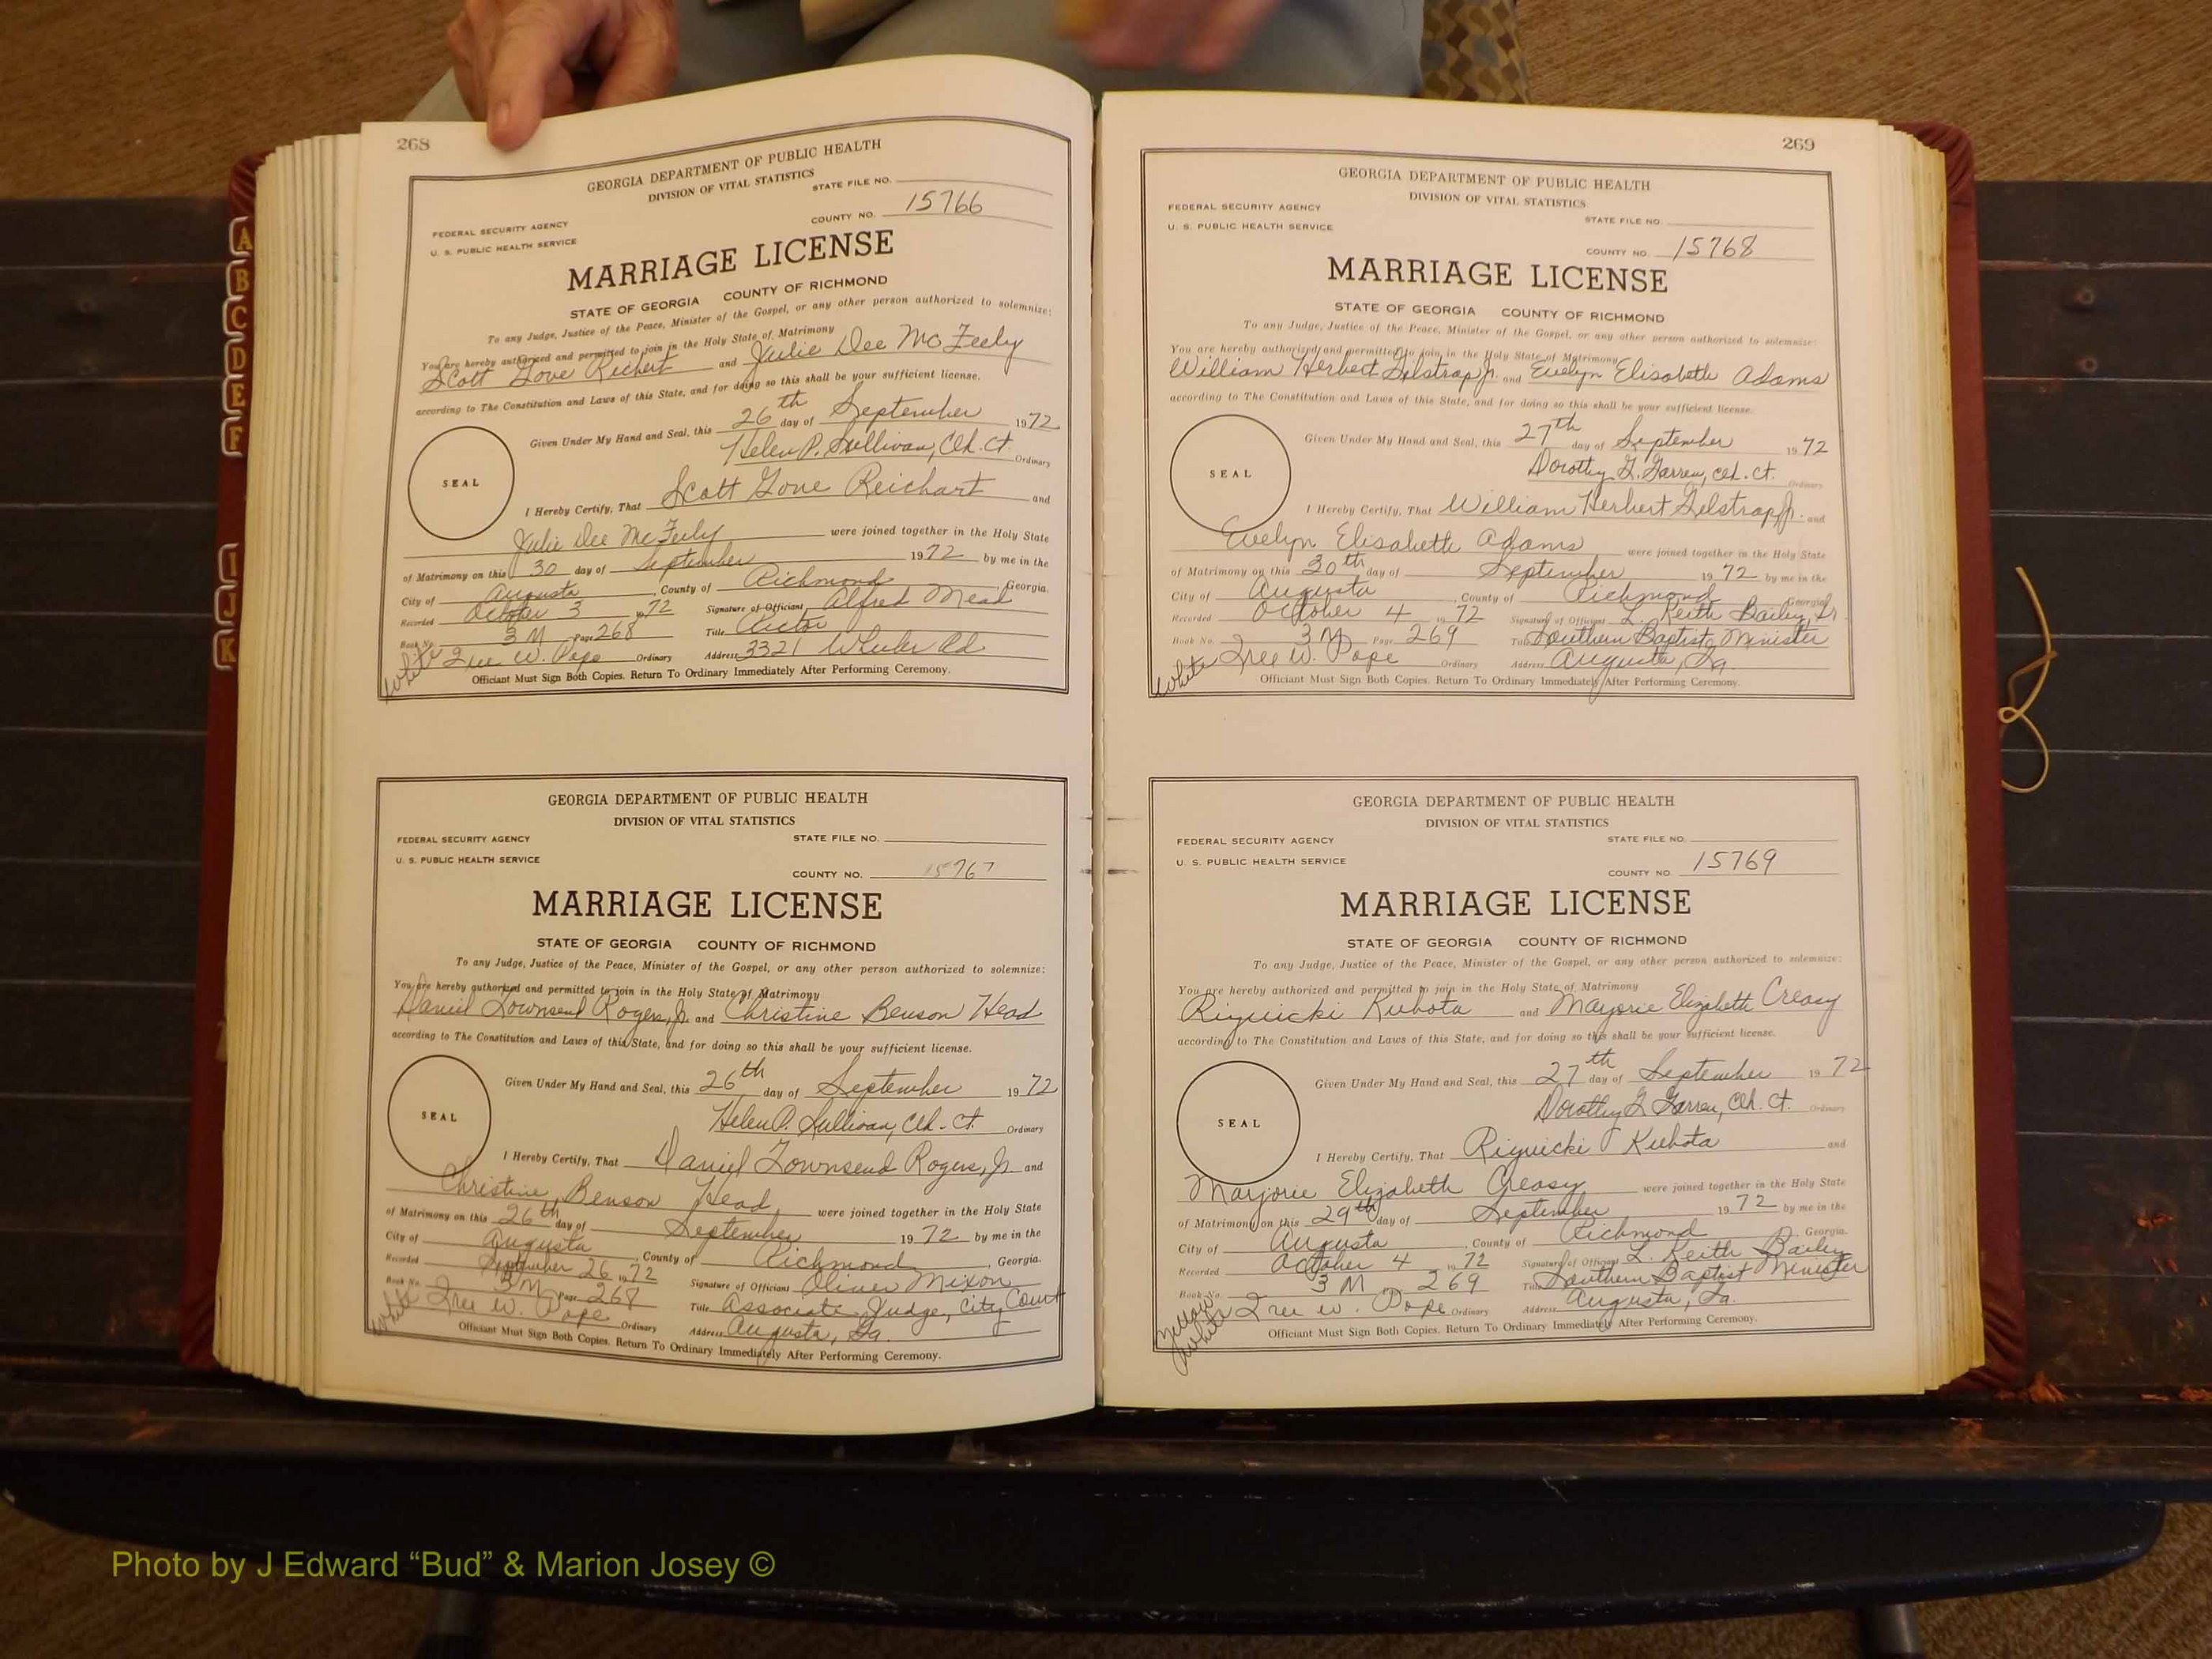 268
GEORGIA DEPARTMENT OF PUBLIC HEALTH
DIVISION OF VITAL STATISTICS
STATE FILE NO.
FEDERAL SECURITY AGENCY
COUNTY NO. 15766
U. S. PUBLIC HEALTH SERVICE
MARRIAGE LICENSE
STATE OF GEORGIA COUNTY OF RICHMOND
To any Judge, Justice of the Peace, Minister of the Gospel, or any other person authorized to solemnize:
You are hereby authorized and permitted to join in the Holy State of Matrimony
Scott Gove Richert and Julie Dee McFeely
according to The Constitution and Laws of this State, and for doing so this shall be your sufficient license.
Given Under My Hand and Seal, this 26th day of September 1972
Helen P. Sullivan, Clk. Ct. Ordinary
SEAL
I Hereby Certify, That Scott Gove Reichart and
Julie Dee McFeely were joined together in the Holy State
of Matrimony on this 30 day of September 1972 by me in the
City of Augusta, County of Richmond, Georgia.
Recorded October 3 1972 Signature of Officiant Alfred Mead
Book No. 3M Page 268 Title
White W. Pope Ordinary Address 3321 Wheeler Rd
Officiant Must Sign Both Copies. Return To Ordinary Immediately After Performing Ceremony.
GEORGIA DEPARTMENT OF PUBLIC HEALTH
DIVISION OF VITAL STATISTICS
FEDERAL SECURITY AGENCY STATE FILE NO.
U. S. PUBLIC HEALTH SERVICE
COUNTY NO. 15767
MARRIAGE LICENSE
STATE OF GEORGIA COUNTY OF RICHMOND
To any Judge, Justice of the Peace, Minister of the Gospel, or any other person authorized to solemnize:
You are hereby authorized and permitted to join in the Holy State of Matrimony
Daniel Townsend Rogers, Jr. and Christine Benson Head
according to The Constitution and Laws of this State, and for doing so this shall be your sufficient license.
Given Under My Hand and Seal, this 26th day of September 1972
Helen P. Sullivan, Clk. Ct. Ordinary
SEAL
I Hereby Certify, That Daniel Townsend Rogers, Jr. and
Christine Benson Head were joined together in the Holy State
of Matrimony on this 26th day of September 1972 by me in the
City of Augusta, County of Richmond, Georgia.
Recorded September 26 1972 Signature of Officiant Oliver Mixon
Book No. 3M Page 268 Title Associate Judge, City Court
White W. Pope Ordinary Address Augusta, Ga.
Officiant Must Sign Both Copies. Return To Ordinary Immediately After Performing Ceremony.
269
GEORGIA DEPARTMENT OF PUBLIC HEALTH
DIVISION OF VITAL STATISTICS
FEDERAL SECURITY AGENCY
STATE FILE NO.
U. S. PUBLIC HEALTH SERVICE
COUNTY NO. 15768
MARRIAGE LICENSE
STATE OF GEORGIA COUNTY OF RICHMOND
To any Judge, Justice of the Peace, Minister of the Gospel, or any other person authorized to solemnize:
You are hereby authorized and permitted to join in the Holy State of Matrimony
William Herbert Gilstrap Jr. and Evelyn Elisabeth Adams
according to The Constitution and Laws of this State, and for doing so this shall be your sufficient license.
Given Under My Hand and Seal, this 27th day of September 1972
Dorothy G. Garren, Clk. Ct. Ordinary
SEAL
I Hereby Certify, That William Herbert Gelstrap, Jr. and
Evelyn Elisabeth Adams were joined together in the Holy State
of Matrimony on this 30th day of September 1972 by me in the
City of Augusta, County of Richmond Georgia
Recorded October 4 1972 Signature of Officiant L. Keith Bailey, Sr
Book No. 3M Page 269 Title Southern Baptist Minister
White W. Pope Ordinary Address Augusta, Ga.
Officiant Must Sign Both Copies. Return To Ordinary Immediately After Performing Ceremony.
GEORGIA DEPARTMENT OF PUBLIC HEALTH
DIVISION OF VITAL STATISTICS
FEDERAL SECURITY AGENCY STATE FILE NO.
U. S. PUBLIC HEALTH SERVICE
COUNTY NO 15769
MARRIAGE LICENSE
STATE OF GEORGIA COUNTY OF RICHMOND
To any Judge, Justice of the Peace, Minister of the Gospel, or any other person authorized to solemnize:
You are hereby authorized and permitted to join in the Holy State of Matrimony
Kubota and Marjorie Elizabeth Creasy
according to The Constitution and Laws of this State, and for doing so this shall be your sufficient license.
Given Under My Hand and Seal, this 27th day of September 1972
Dorothy G Garren, Clk. Ct. Ordinary
SEAL
I Hereby Certify, That Kubota and
Marjorie Elizabeth Creasy were joined together in the Holy State
of Matrimony on this 29th day of September 1972 by me in the
City of Augusta, County of Richmond, Georgia.
Recorded October 4 1972 Signature of Officiant L. Keith Bailey
Book No. 3M 269 Title Southern Baptist Minister
Yellow White W. Pope Ordinary Address Augusta, Ga.
Officiant Must Sign Both Copies. Return To Ordinary Immediately After Performing Ceremony.
A
B
C
D
E
F
I
J
K
Photo by J Edward “Bud” & Marion Josey ©